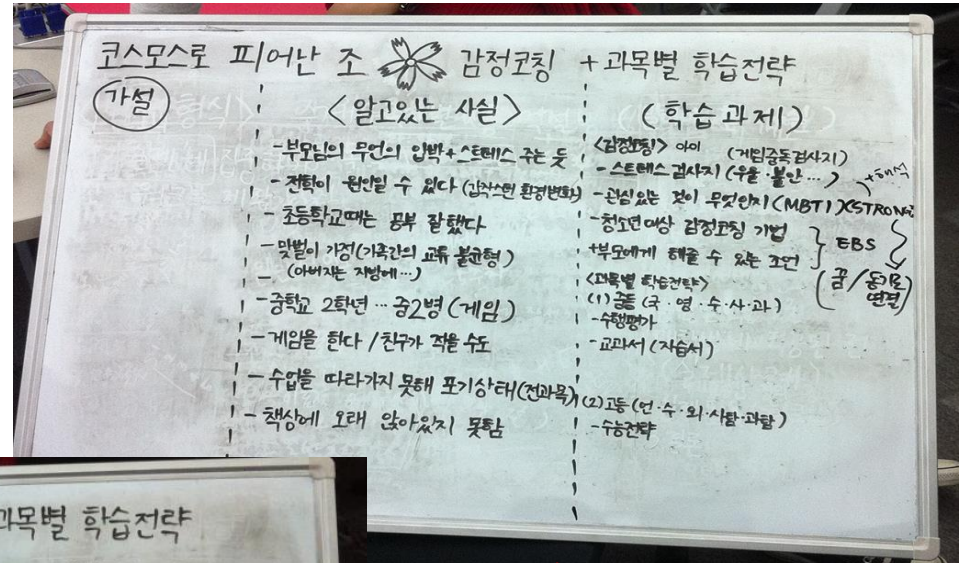 코스모스로 피어난 조 감정코칭 + 과목별 학습전략
가설
<알고있는 사실>
- 부모님의 무언의 압박 + 스트레스 주는 듯
- 전학이 원인일 수 있다 (갑작스런 환경변화)
- 초등학교때는 공부 잘했다
- 맞벌이 가정 (가족간의 교류 불균형)
- (아버지는 지방에…)
- 중학교 2학년 … 중2병 (게임)
- 게임을 한다 / 친구가 적을 수도
- 수업을 따라가지 못해 포기상태 (전과목)
- 책상에 오래 앉아있지 못함
(학습과제)
<감정코칭> 아이 (게임중독검사지)
- 스트레스 검사지 (우울·불안…)
- 관심있는 것이 무엇인지 (MBTI)(STRONG)
- 청소년대상 감정코칭 기법
+ 부모에게 해줄 수 있는 조언
EBS
(꿈/동기로 연결)
<과목별 학습전략>
(1) 중등 (국·영·수·사·과)
- 수행평가
- 교과서 (자습서)
(2) 고등 (언·수·외·사탐·과탐)
- 수능전략
과목별 학습전략